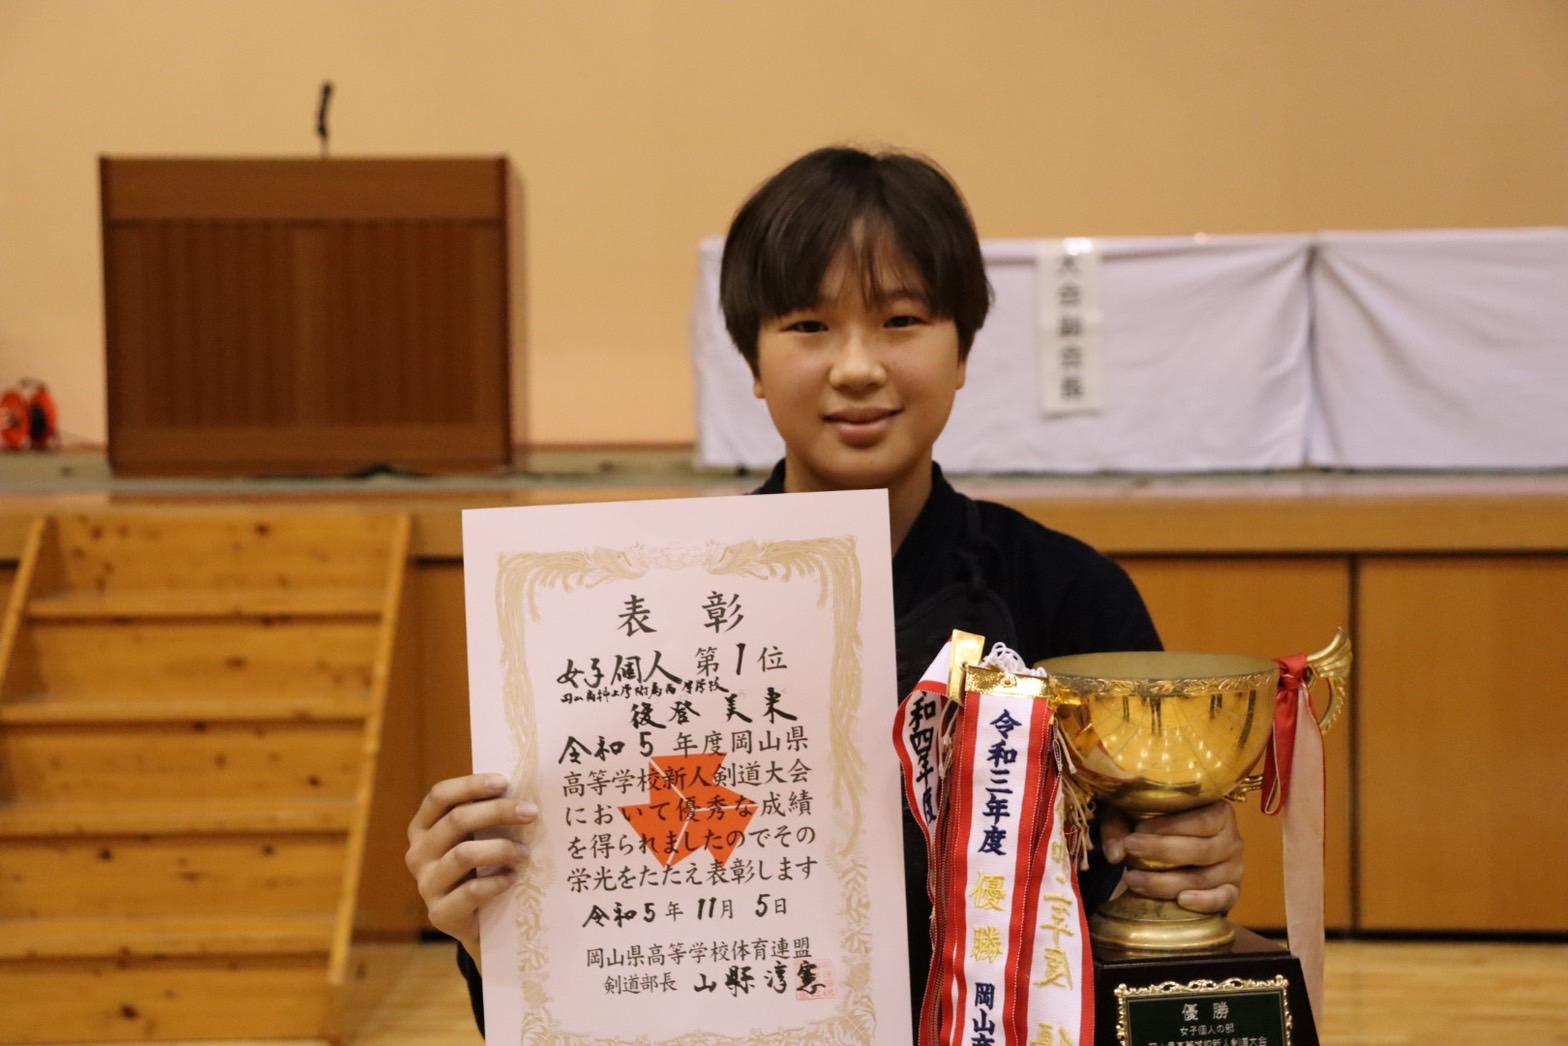 大会副会長
表彰
女子個人第1位
岡山商科大学附属高等学校
後登美来
令和5年度岡山県
高等学校新人剣道大会
において優秀な成績
を得られましたのでその
栄光をたたえ表彰します
令和5年11月5日
岡山県高等学校体育連盟
剣道部長
和四年度
令和三年度
優勝
岡山
優勝
女子個人の部
岡山県高等学校新人剣道大会